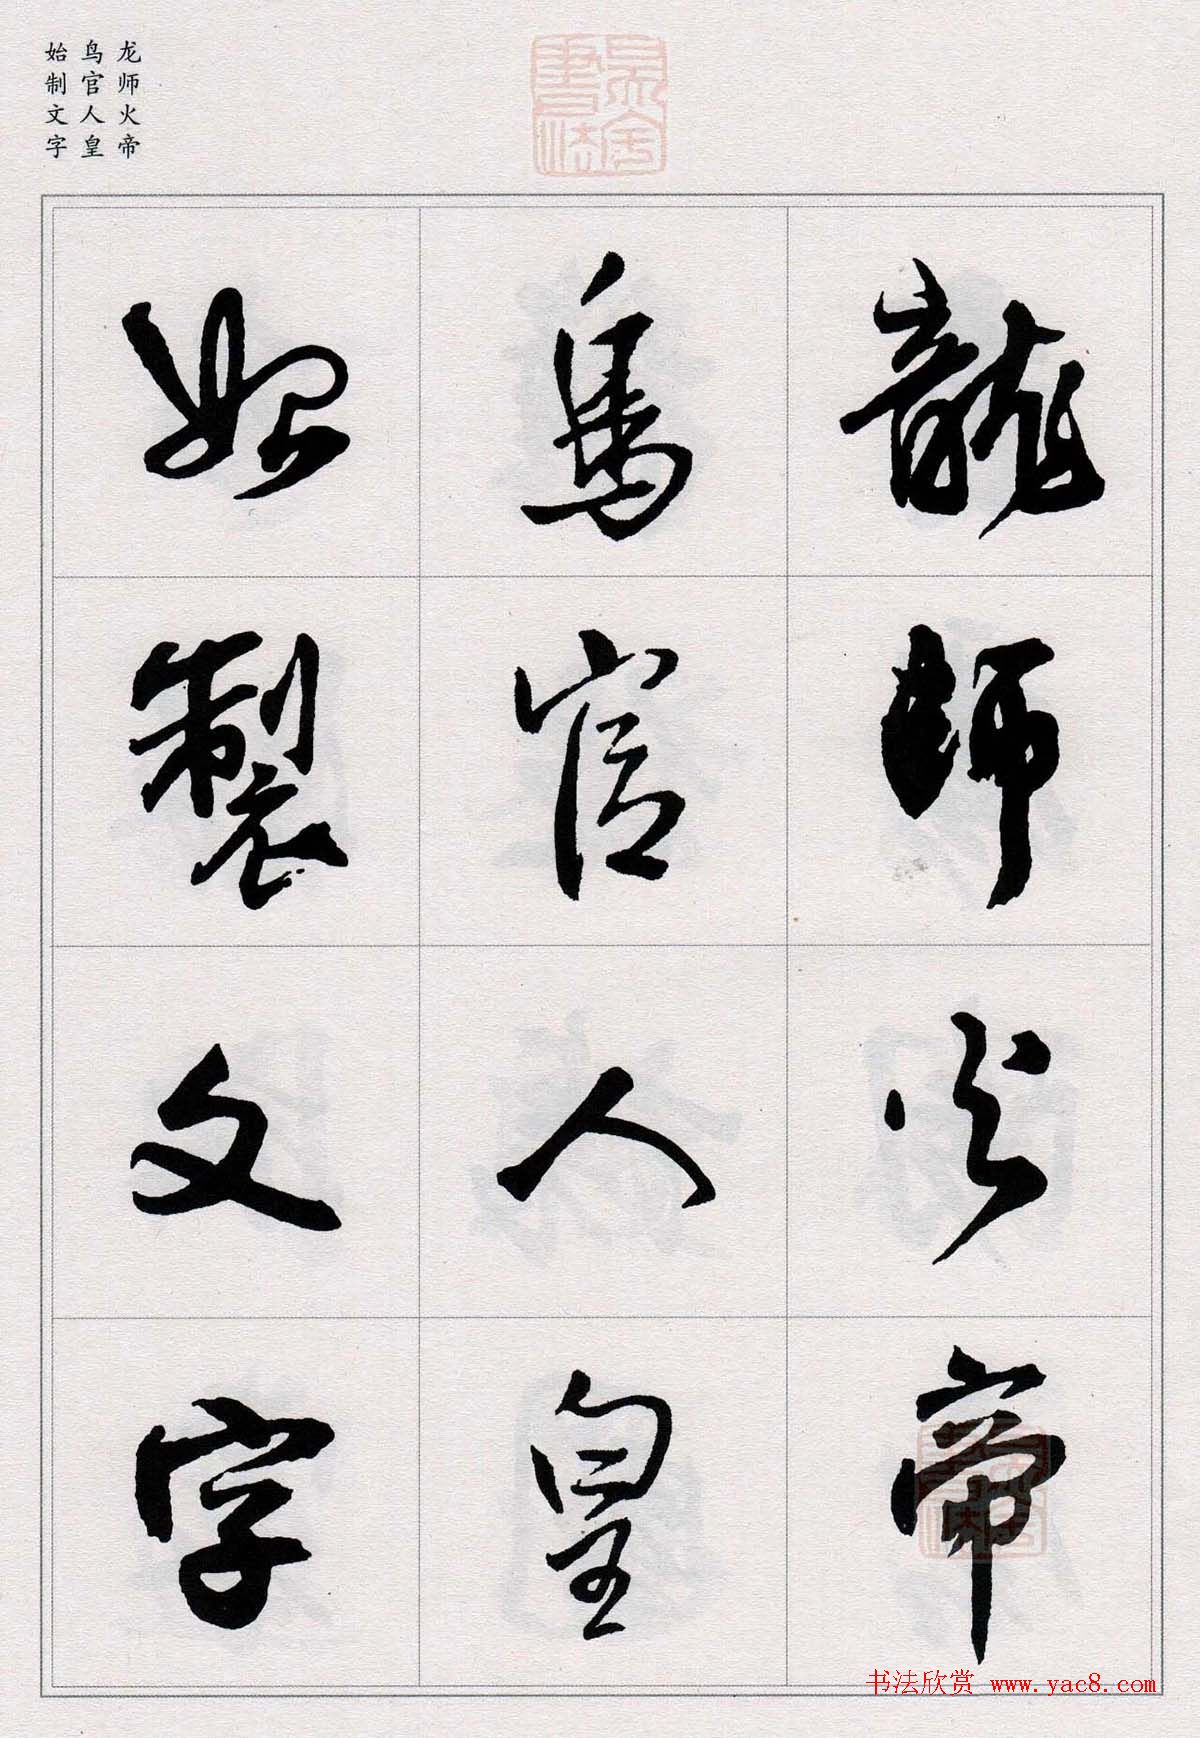 龙师火帝
鸟官人皇
始制文字
龍師火帝
鳥官人皇
始製文字
书法欣赏 www.yac8.com